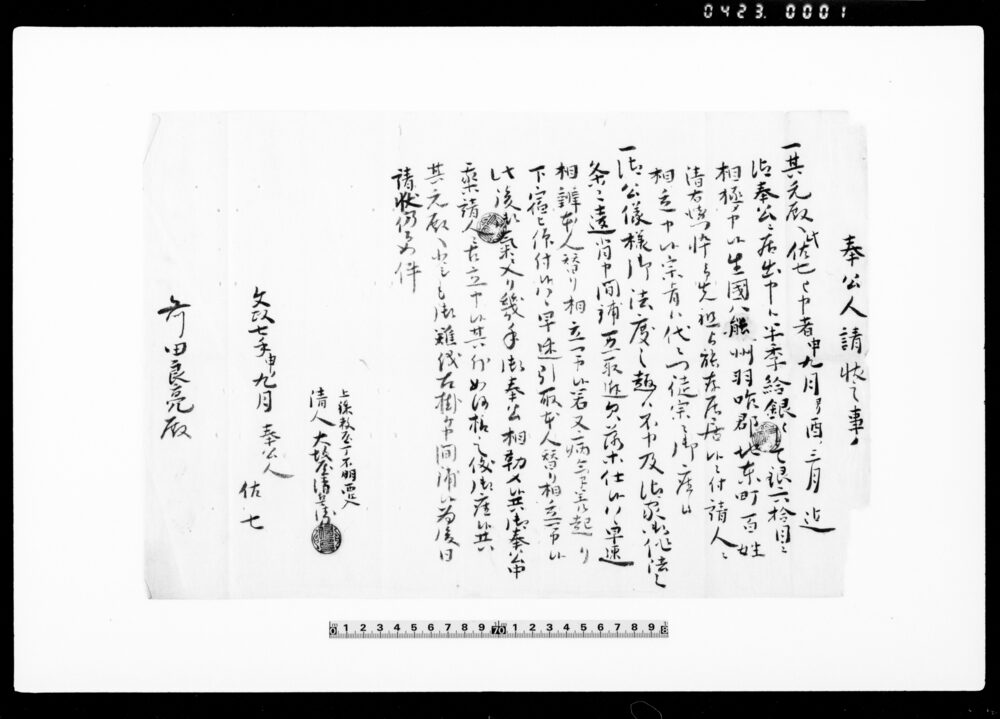 0423. 0001
奉公人請状之事
一其元殿へ此佐七と申者申九月より酉ノ三月迄
御奉公ニ居出申候半季給銀として銀六拾目ニ
相極申候生国ハ能州羽咋郡地東町百姓
清右衛門忰ニ而先祖より能存居候ニ付請人ニ
相立申候宗旨ハ代々一徒宗ニ御座候
一御公儀様御法度之趣ハ不申及御家御作法之
条々違背申間鋪万一取逃欠落等仕候ハヽ早速
相辨本人替り相立可申候若又病気等差起り
下宿被仰付候ハヽ早速引取本人替り相立可申候
此後御気ニ入り幾年御奉公相勤候共御奉公中
我等請人ニ居立申候其外如何様之儀御座候共
其元殿へ少しも御難儀相掛申間鋪候為後日
請状仍而如件
文政七年申九月 奉公人
佐七
請人 大坂屋清兵衛
岡田良亮殿
0 1 2 3 4 5 6 7 8 9 10 1 2 3 4 5 6 7 8 9